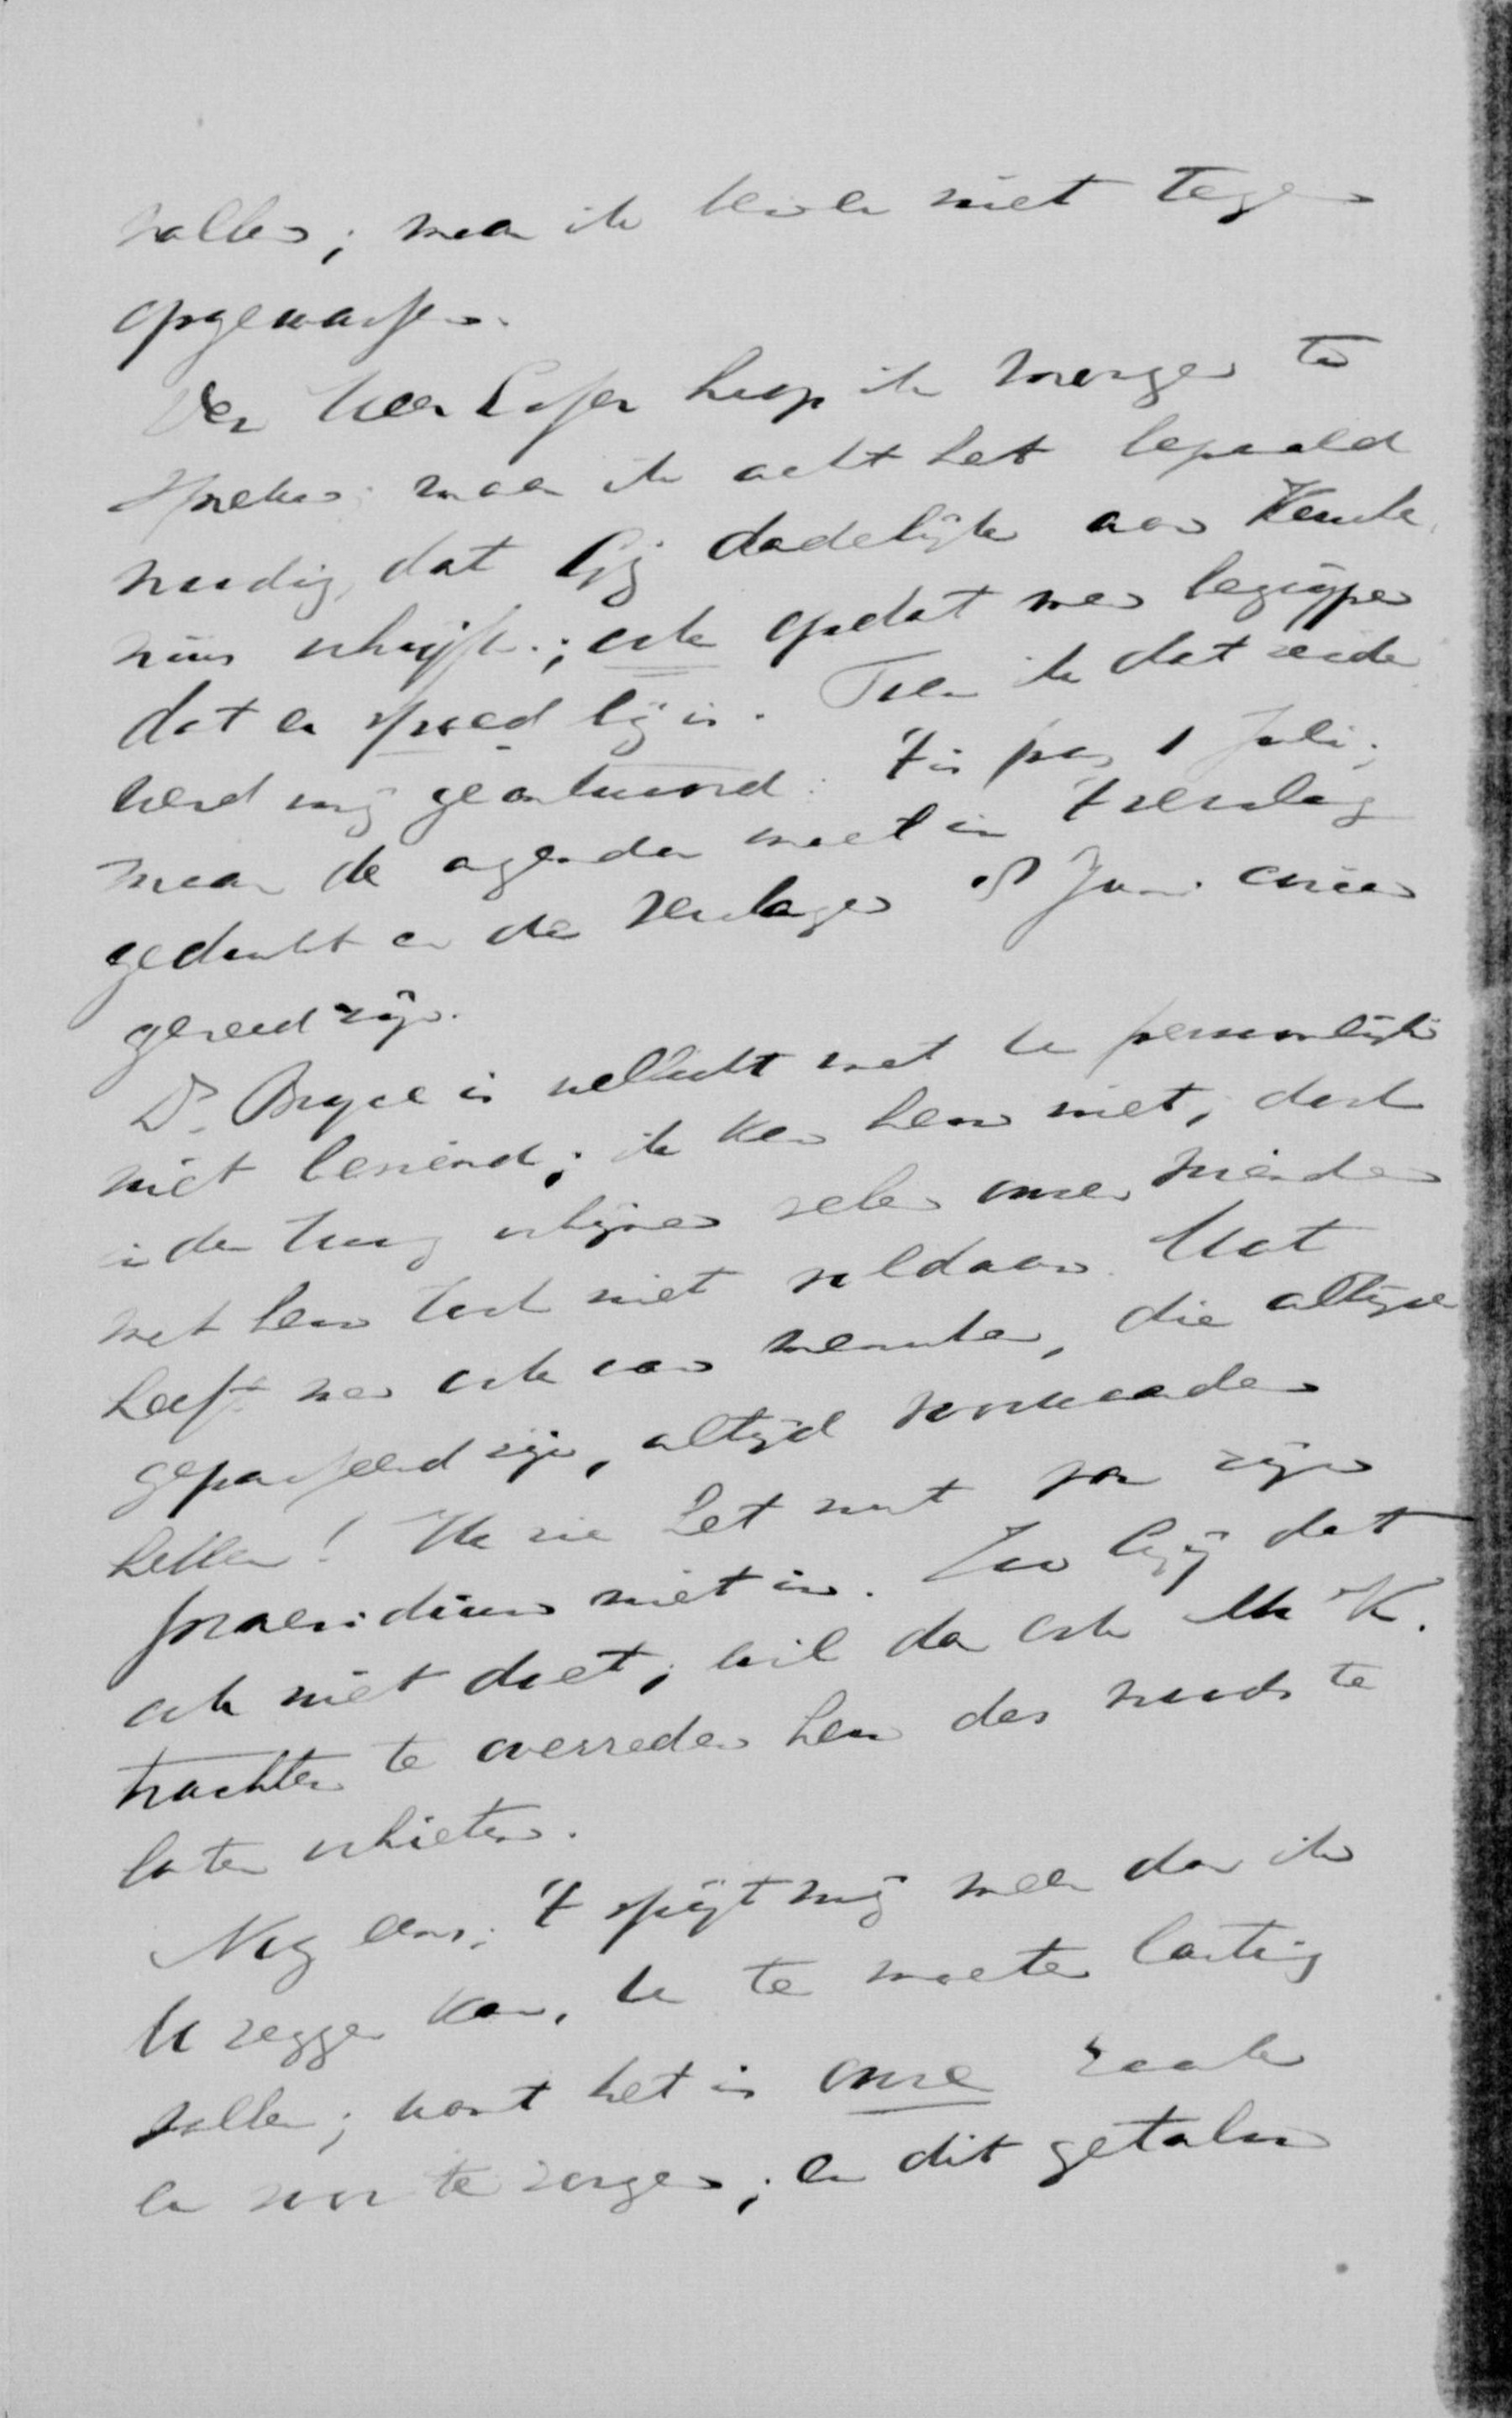 vallen; maar ik ben er niet tegen
opgewassen.
Den Heer Esser hoop ik morgen te
spreken; maar ik acht het bepaald
noodig, dat Gij dadelijk aan
schrijft; ook opdat men begrijpe
dat er spoed bij is. Toen ik dat zeide
werd mij geantwoord: 't is pas 1 Juli;
maar de agenda moet in 't verslag
gedrukt en de verslagen Juni
gereed zijn.
Dr. Bryce is wellicht met U persoonlijk
niet bevriend; ik ken hem niet; doch
in den Haag schijnen vele onzer vrienden
met hem toch niet voldaan. Wat
heeft men ook aan menschen, die altijd
gepasseerd zijn, altijd voorwaarden
stellen! Ik zie het nut van zijn
praesidium niet in. Zoo Gij dat
ook niet doet, wil dan ook Mr K.
trachten te overreden hem des noods te
laten schieten.
Nog eens; 't spijt mij meer dan ik
U zeggen kan, U te moeten lastig
vallen; want het is onze zaak
er voor te zorgen; en dit